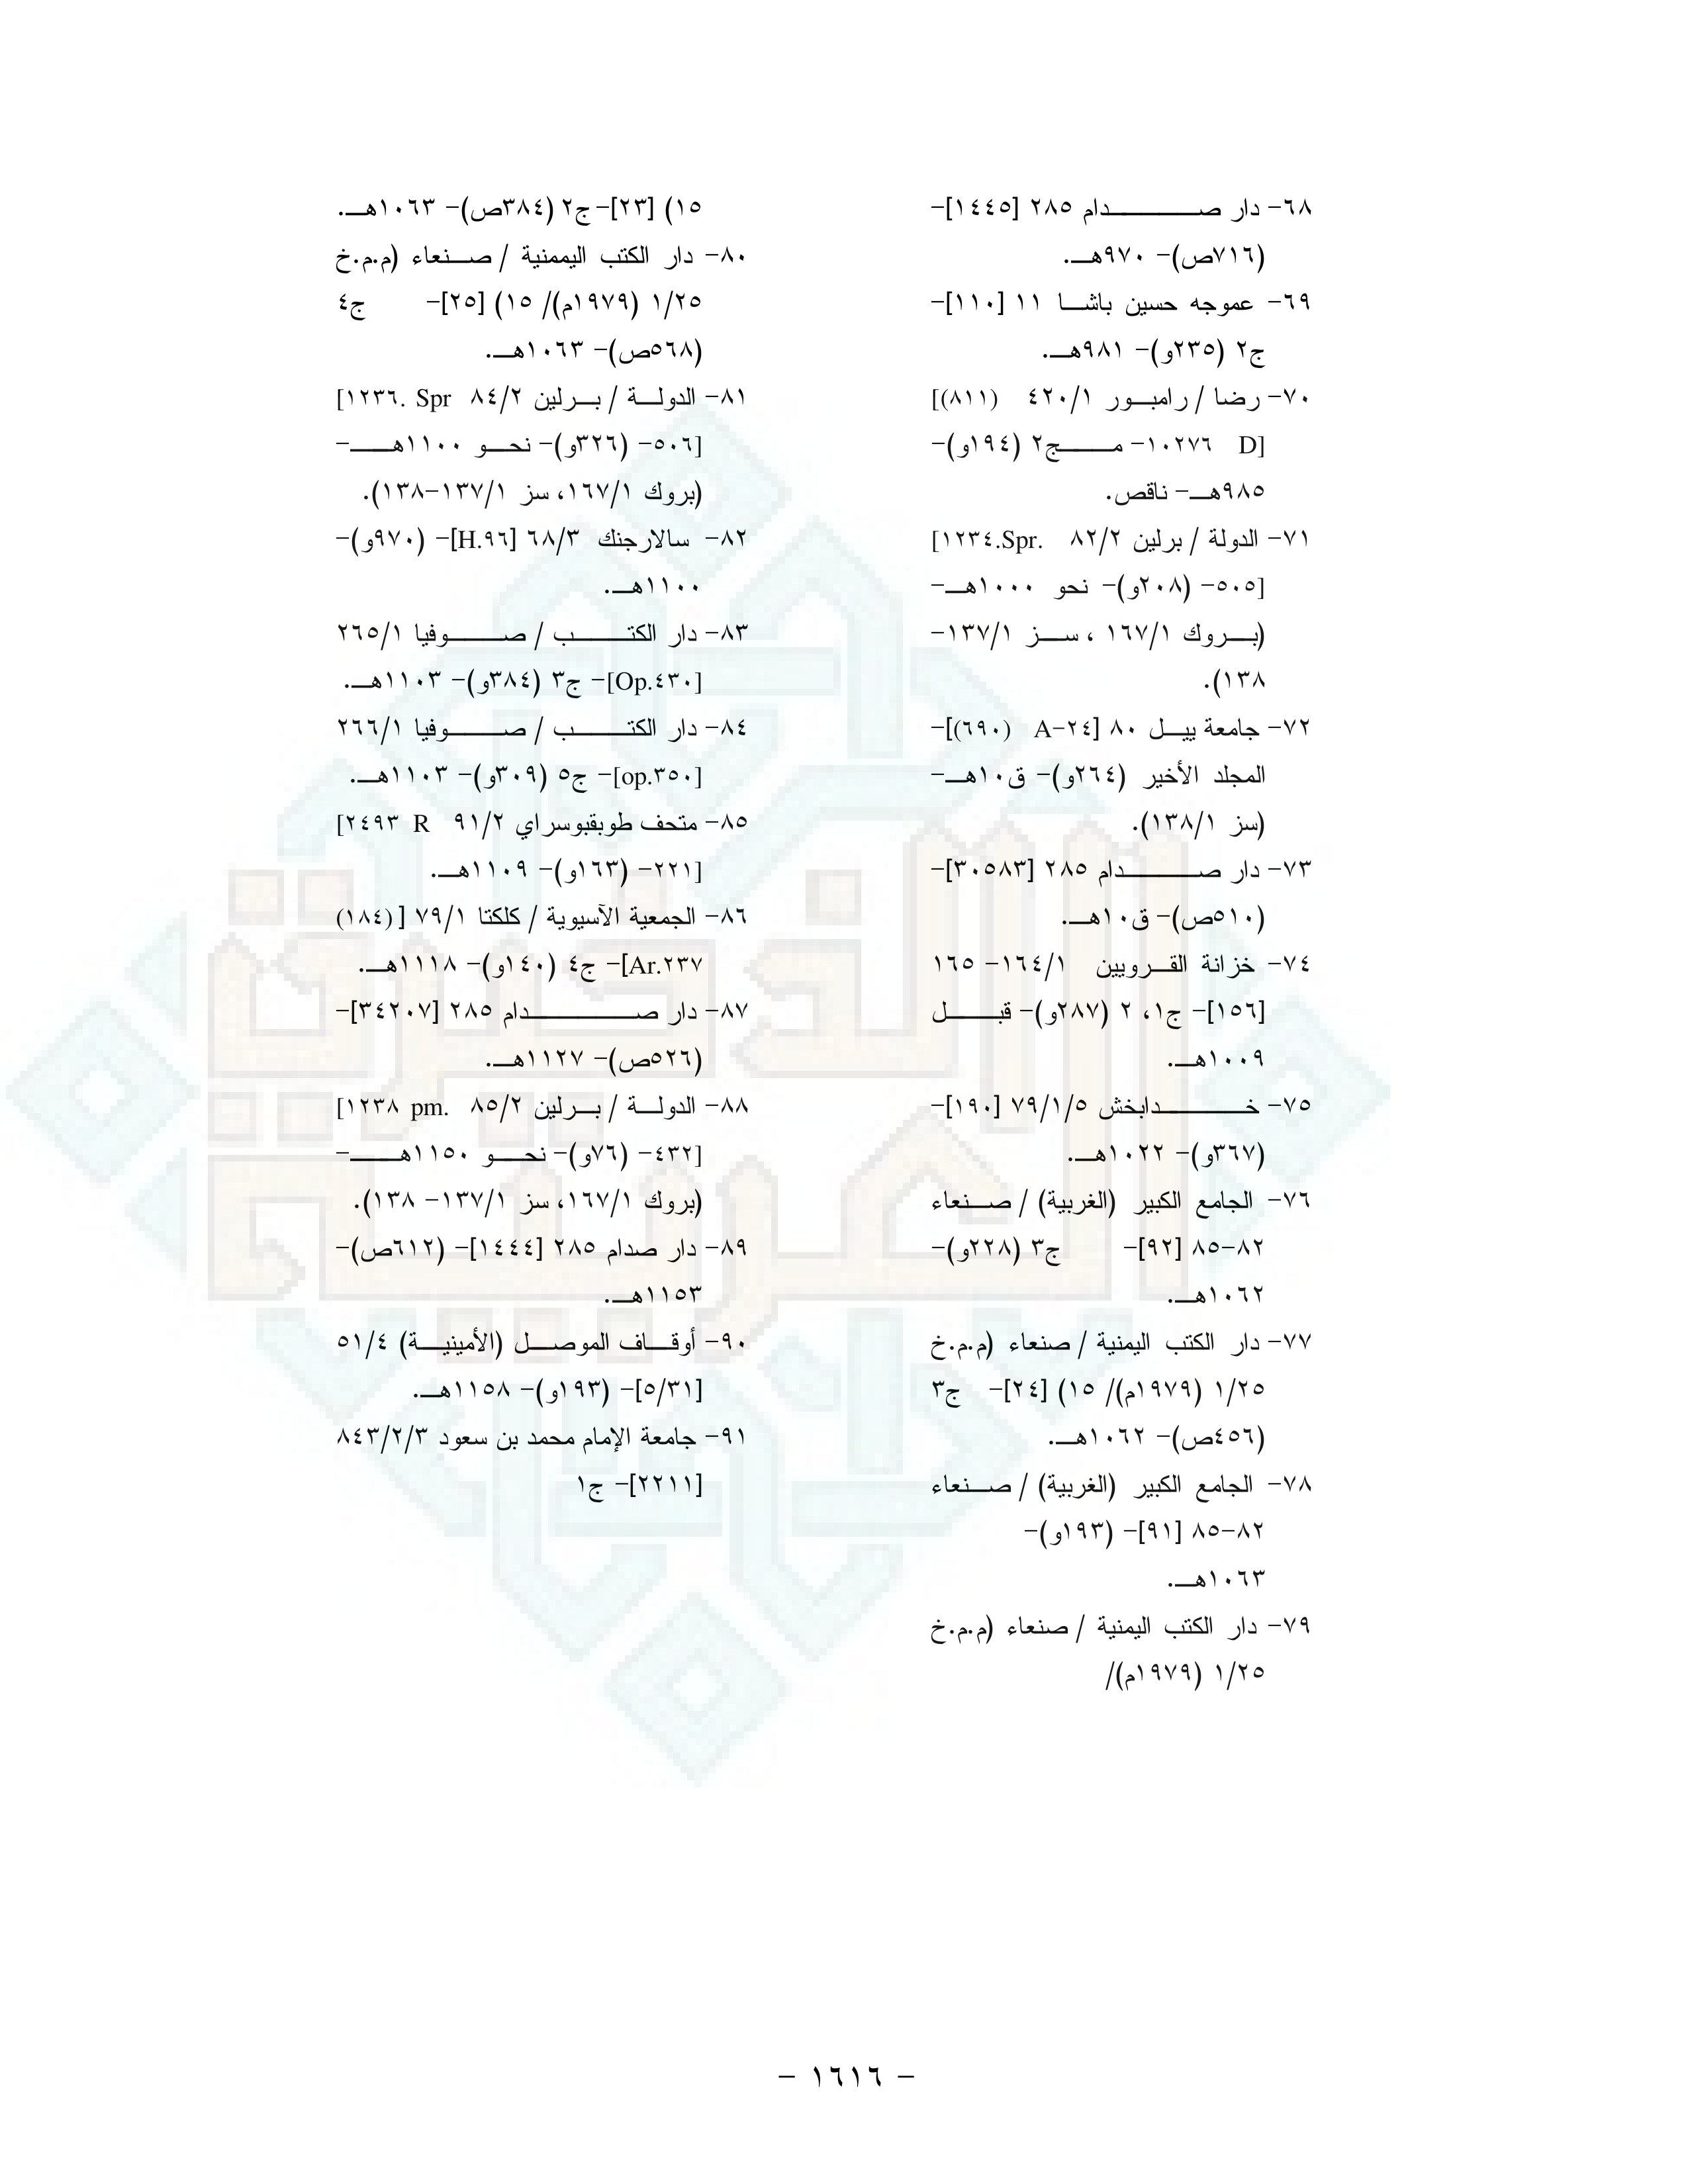 ٦٨- دار صدام ٢٨٥ [١٤٤٥]-
(٧١٦ص)- ٩٧٠هـ.
٦٩- عموجه حسين باشا ١١ [١١٠]-
ج٢ (٢٣٥و)- ٩٨١هـ.
٧٠- رضا / رامبور ٤٢٠/١ (٨١١)]
[D ١٠٢٧٦- مج٢ (١٩٤و)-
٩٨٥هـ- ناقص.
٧١- الدولة / برلين ٨٢/٢ .Spr.١٢٣٤]
[٥٠٥- (٢٠٨و)- نحو ١٠٠٠هـ-
(بروك ١٦٧/١ ، سز ١٣٧/١-
١٣٨).
٧٢- جامعة ييل ٨٠ [A-٢٤ (٦٩٠)]-
المجلد الأخير (٢٦٤و)- ق١٠هـ-
(سز ١٣٨/١).
٧٣- دار صدام ٢٨٥ [٣٠٥٨٣]-
(٥١٠ص)- ق١٠هـ.
٧٤- خزانة القرويين ١٦٤/١- ١٦٥
[١٥٦]- ج١، ٢ (٢٨٧و)- قبل
١٠٠٩هـ.
٧٥- خدابخش ٧٩/١/٥ [١٩٠]-
(٣٦٧و)- ١٠٢٢هـ.
٧٦- الجامع الكبير (الغربية) / صنعاء
٨٢-٨٥ [٩٢]- ج٣ (٢٢٨و)-
١٠٦٢هـ.
٧٧- دار الكتب اليمنية / صنعاء (م.م.خ
١/٢٥ (١٩٧٩م)/ ١٥) [٢٤]- ج٣
(٤٥٦ص)- ١٠٦٢هـ.
٧٨- الجامع الكبير (الغربية) / صنعاء
٨٢-٨٥ [٩١]- (١٩٣و)-
١٠٦٣هـ.
٧٩- دار الكتب اليمنية / صنعاء (م.م.خ
١/٢٥ (١٩٧٩م)/
١٥) [٢٣]- ج٢ (٣٨٤ص)- ١٠٦٣هـ.
٨٠- دار الكتب اليممنية / صنعاء (م.م.خ
١/٢٥ (١٩٧٩م)/ ١٥) [٢٥]- ج٤
(٥٦٨ص)- ١٠٦٣هـ.
٨١- الدولة / برلين ٨٤/٢ Spr .١٢٣٦]
[٥٠٦- (٣٢٦و)- نحو ١١٠٠هـ-
(بروك ١٦٧/١، سز ١٣٧/١-١٣٨).
٨٢- سالارجنك ٦٨/٣ [H.٩٦]- (٩٧٠و)-
١١٠٠هـ.
٨٣- دار الكتب / صوفيا ٢٦٥/١
[Op.٤٣٠]- ج٣ (٣٨٤و)- ١١٠٣هـ.
٨٤- دار الكتب / صوفيا ٢٦٦/١
[op.٣٥٠]- ج٥ (٣٠٩و)- ١١٠٣هـ.
٨٥- متحف طوبقبوسراي ٩١/٢ R ٢٤٩٣]
[٢٢١- (١٦٣و)- ١١٠٩هـ.
٨٦- الجمعية الآسيوية / كلكتا ٧٩/١ [(١٨٤)
Ar.٢٣٧]- ج٤ (١٤٠و)- ١١١٨هـ.
٨٧- دار صدام ٢٨٥ [٣٤٢٠٧]-
(٥٢٦ص)- ١١٢٧هـ.
٨٨- الدولة / برلين ٨٥/٢ .pm ١٢٣٨]
[٤٣٢- (٧٦و)- نحو ١١٥٠هـ-
(بروك ١٦٧/١، سز ١٣٧/١- ١٣٨).
٨٩- دار صدام ٢٨٥ [١٤٤٤]- (٦١٢ص)-
١١٥٣هـ.
٩٠- أوقاف الموصل (الأمينية) ٥١/٤
[٥/٣١]- (١٩٣و)- ١١٥٨هـ.
٩١- جامعة الإمام محمد بن سعود ٨٤٣/٢/٣
[٢٢١١]- ج١
الذخيرة
العربية
- ١٦١٦ -